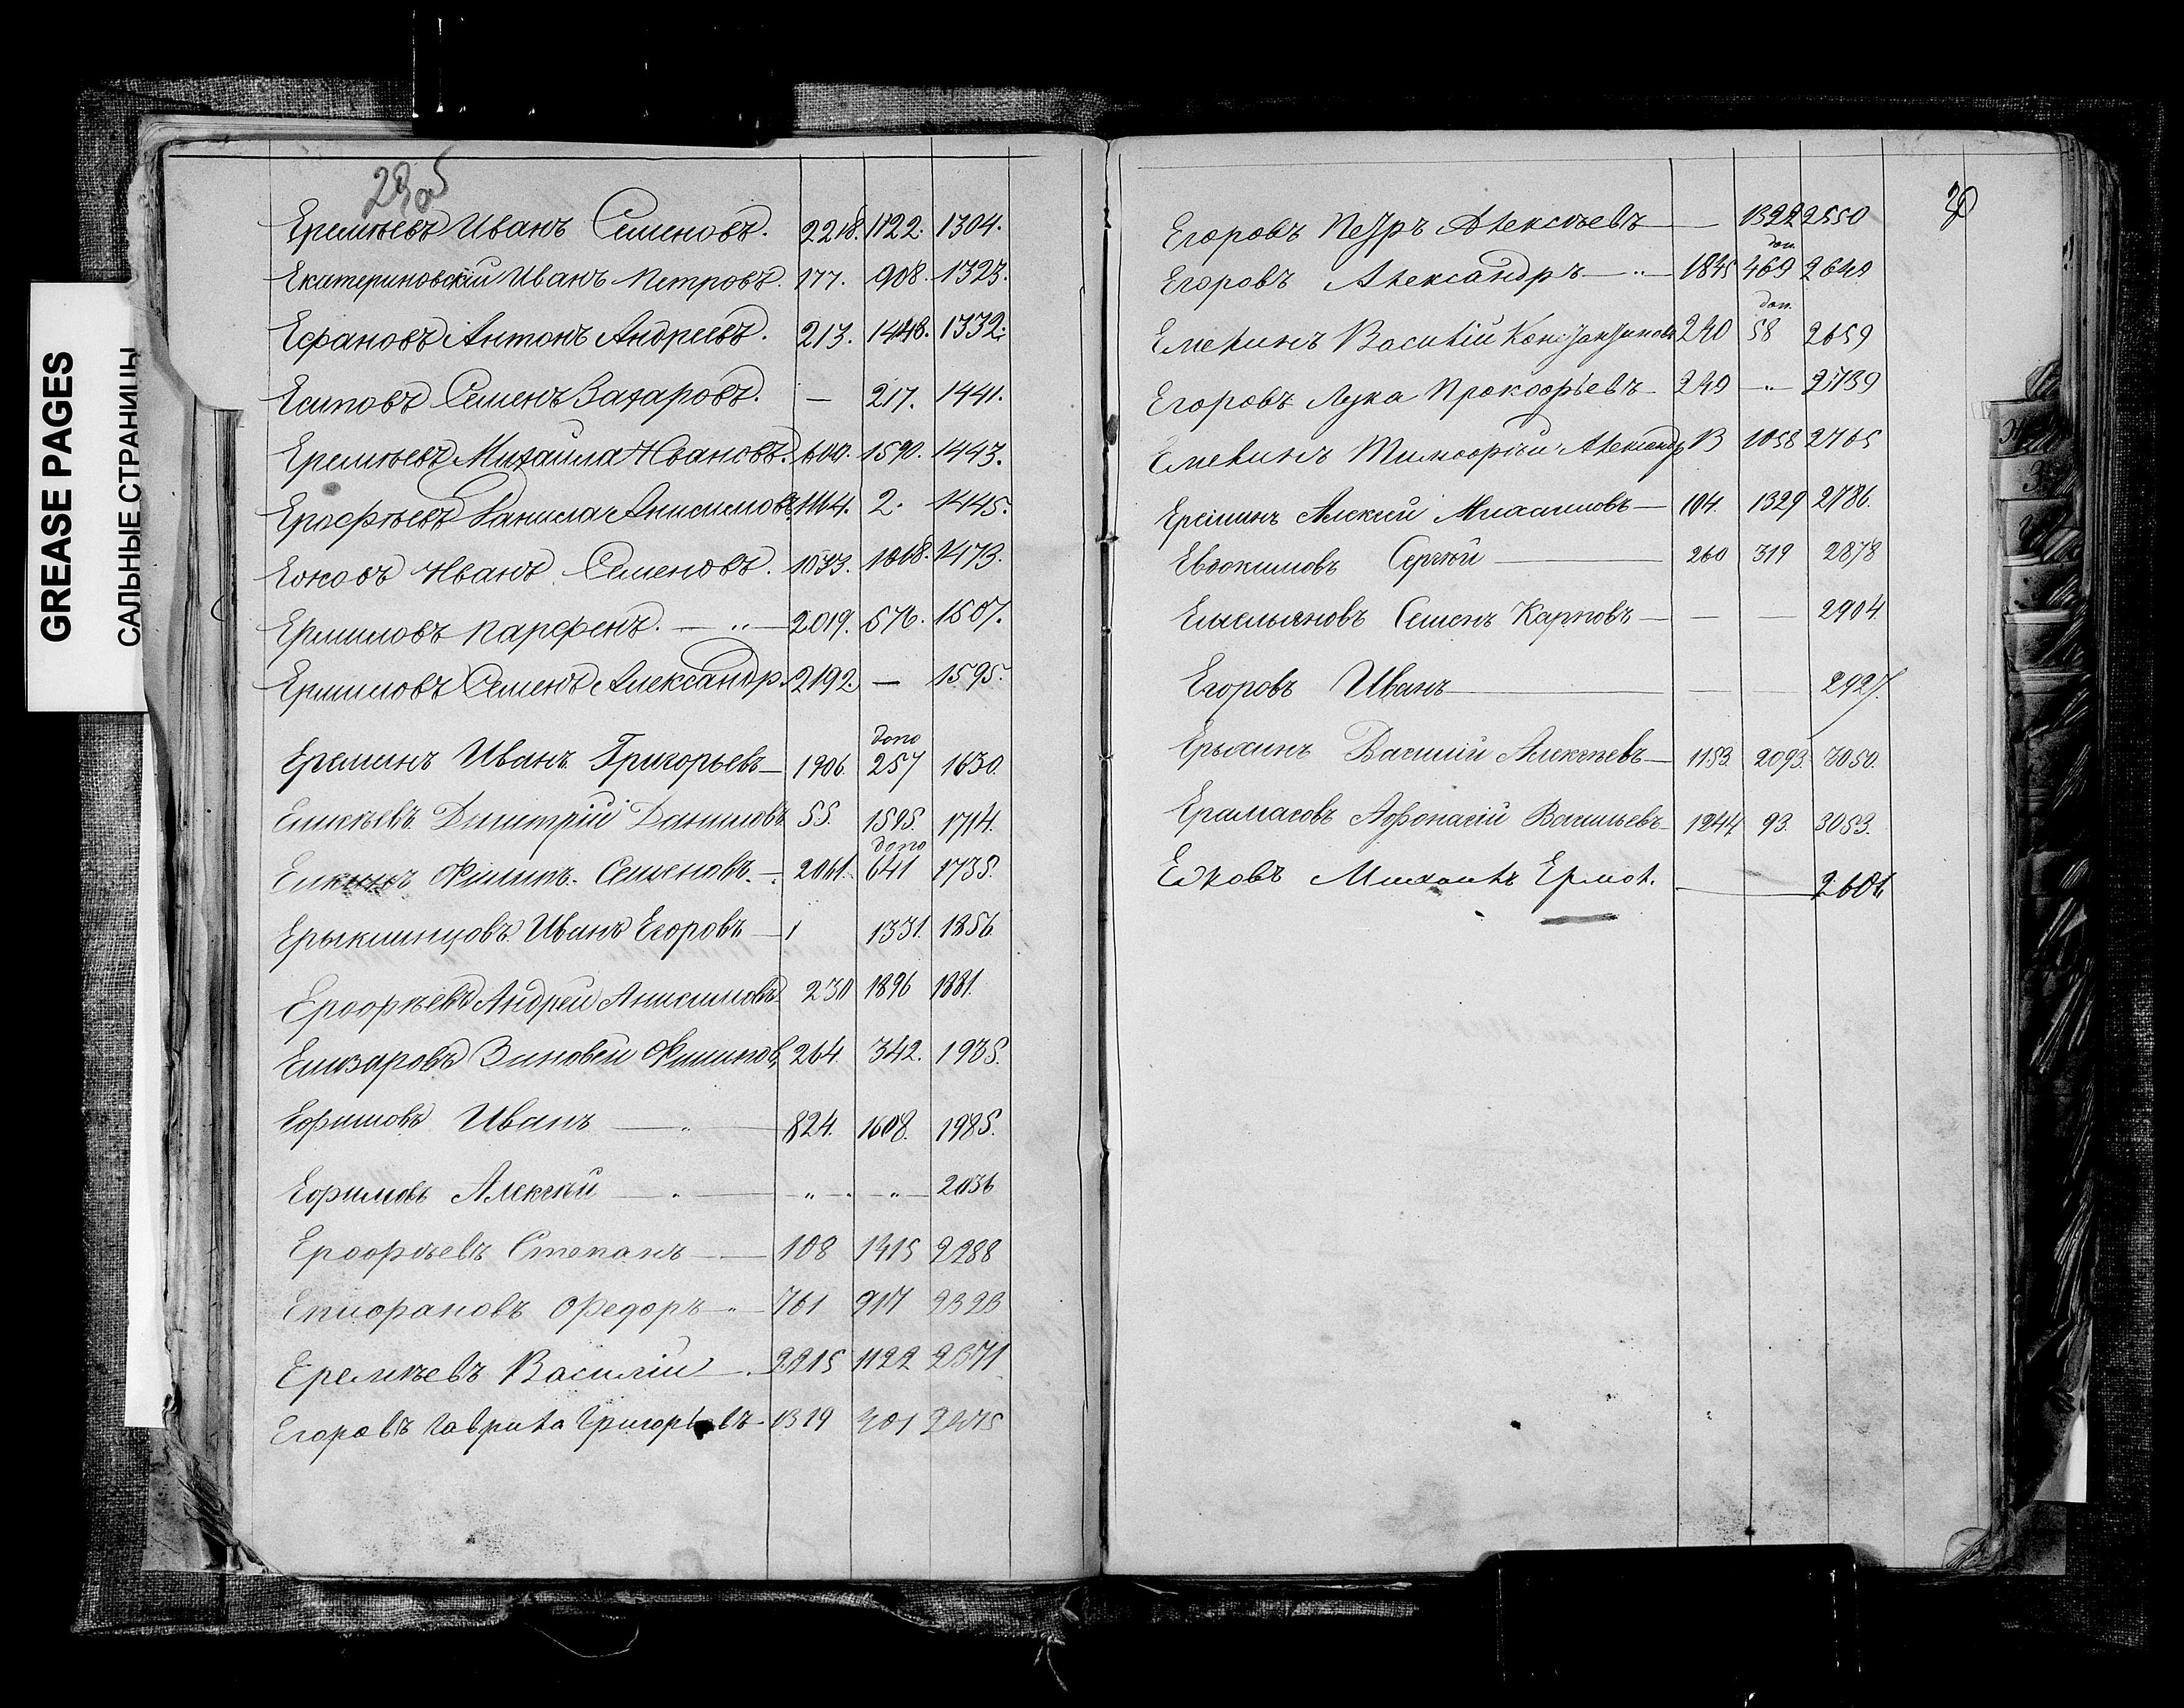 GREASE PAGES
САЛЬНЫЕ СТРАНИЦЫ
28об
Еремѣевъ Иванъ Семеновъ. 2218. 1122. 1304.
Екатериновскiй Иванъ Петровъ. 177. 908. 1323.
Ефановъ Антонъ Андреевъ. 213. 1448. 1332.
Есиповъ Семенъ Захаровъ. — 217. 1441.
Еремѣевъ Михаила Ивановъ. 600. 1590. 1443.
Ерофѣевъ Данила Анисимовъ 1114. 2. 1445.
Ежовъ Иванъ Семеновъ. 1033. 1068. 1473.
Ермиловъ Парфенъ. — „ — 2019. 576. 1507.
Ермиловъ Семенъ Александр. 2192. — 1595.
допо
Ереминъ Иванъ Григорьевъ — 1906. 257 1630.
Елисѣевъ Дмитрiй Даниловъ 55. 1595. 1714.
допо
Филипъ Семеновъ. — 2061. 641 1735.
Ерыклинцовъ Иванъ Егоровъ — 1 1331. 1856.
Ерофѣевъ Андрей Анисимовъ 230 1896 1881.
Елизаровъ Зиновей Филипов, 264. 342. 1935.
Ефимовъ Иванъ — „ — 824. 1608. 1985.
Ефимовъ Алексѣй — „ — „ — „ — 2036
Ерофѣевъ Степанъ — 108 1415 2288
Епифановъ Федоръ „ — 761 917 2323
Еремѣевъ Василiй — 2215 1122 2371
Егоровъ Гаврила Григорьевъ — 1319 301
Егоровъ Петръ Алексѣевъ — — 1322 2550
доп.
Егоровъ Александръ — „ — 1845 469 2640
доп.
Емелинъ Василiй Константиновъ 240 58 2659
Егоровъ Лука Прокофьевъ — 249 — „ — 2739
Емелинъ Тимофѣй Александр 13 1058 2765
Ереминъ Алексѣй Михаиловъ — 104. 1329 2786.
Евдокимовъ Сергѣй — 260 319 2878
Емельяновъ Семенъ Карповъ — — — 2904.
Егоровъ Иванъ — — — 2927.
Ерыхинъ Василiй Алексѣевъ — 1153. 2093. 3050.
Ерамасовъ Афонасiй Васильевъ — 1244 93. 3053.
Ежовъ Михаилъ Ермол. — 2606